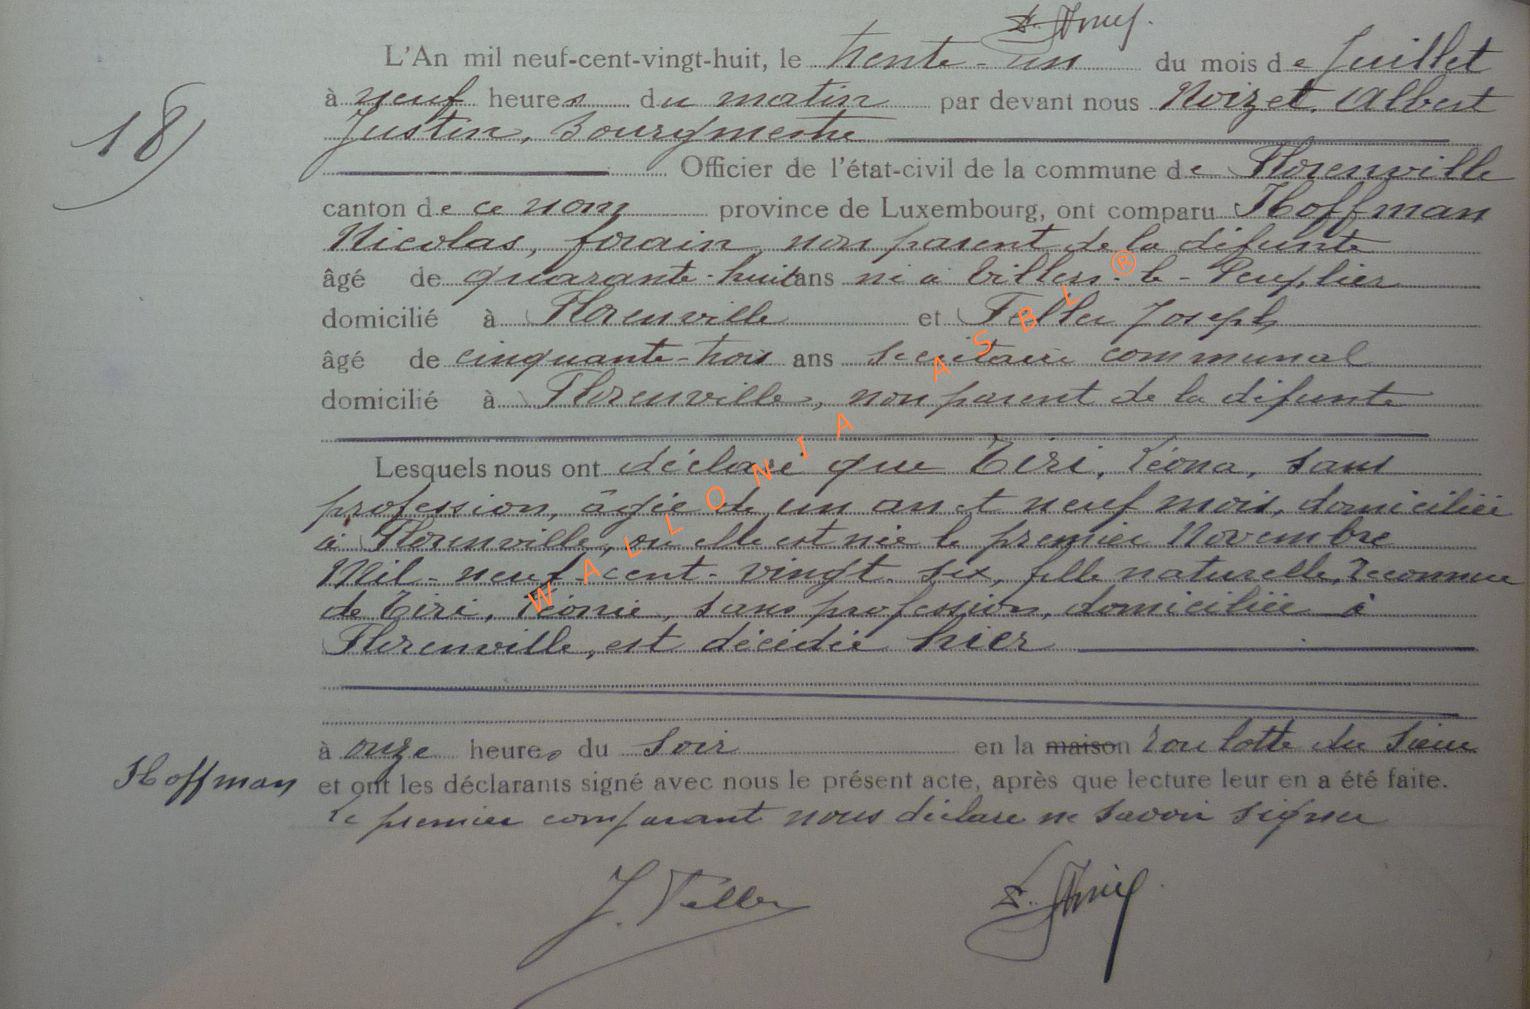 L'An mil neuf-cent-vingt-huit, le trente-un du mois de Juillet
18)
à neuf heures du matin par devant nous Noizet, Albert
Justin, Bourgmestre
Officier de l'état-civil de la commune de Florenville
canton de ce nom province de Luxembourg, ont comparu Hoffman
Nicolas, forain, non parent de la défunte
âgé de quarante-huit ans né à Villers-le-Peuplier
domicilié à Florenville et Feller Joseph
âgé de cinquante-trois ans secrétaire communal
domicilié à Florenville, non parent de la défunte
Lesquels nous ont déclaré que Tiri, Léona, sans
profession, âgée de un an et neuf mois, domiciliée
à Florenville, où elle est née le premier Novembre
Mil-neuf-cent-vingt-six, fille naturelle, reconnue
de Tiri, Léonie, sans profession, domiciliée à
Florenville, est décédée hier
à onze heures du soir en la maison roulotte du sieur
Hoffman et ont les déclarants signé avec nous le présent acte, après que lecture leur en a été faite.
Le premier comparant nous déclare ne savoir signer
J. Feller
WALLONIA ASBL ®